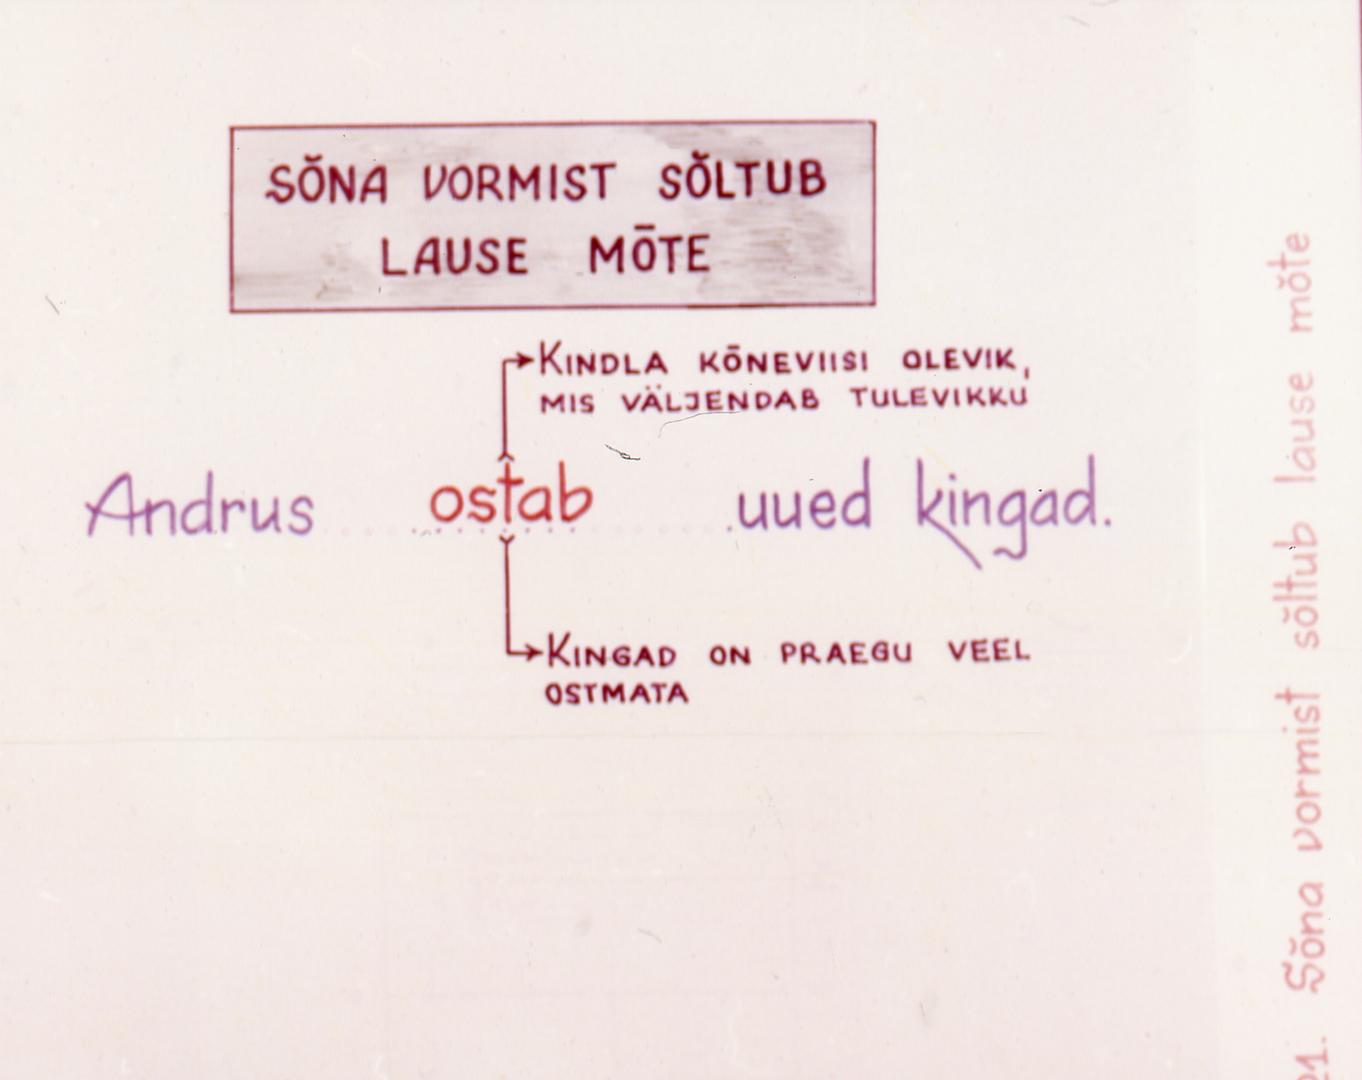 SÕNA VORMIST SÕLTUB
LAUSE MÕTE
KINDLA KÕNEVIISI OLEVIK,
MIS VÄLJENDAB TULEVIKKU
Andrus ostab uued kingad.
KINGAD ON PRAEGU VEEL
OSTMATA
Sõna vormist sõltub lause mõte